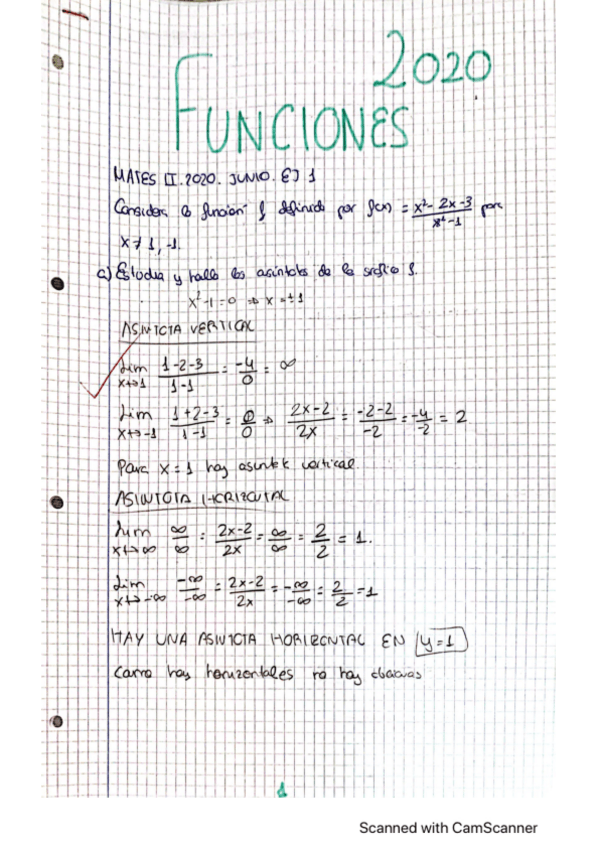 2020
FUNCIONES
MATES II. 2020. JUNIO. EJ 1
Considera la función f definida por f(x) = x²- 2x -3 / x²-1 para
x ≠ 1, -1.
a) Estudia y halla las asíntotas de la gráfica f.
x²-1=0 ⇒ x = ±1
ASINTOTA VERTICAL
Lim x→1 1-2-3 / 1-1 = -4/0 = ∞
Lim x→-1 1+2-3 / 1-1 = 0/0 ⇒ 2x-2 / 2x = -2-2 / -2 = -4/-2 = 2
Para x = 1 hay asintota vertical
ASINTOTA HORIZONTAL
Lim x→∞ ∞/∞ = 2x-2 / 2x = ∞/∞ = 2/2 = 1.
Lim x→-∞ -∞/-∞ = 2x-2 / 2x = -∞/-∞ = 2/2 = 1
HAY UNA ASINTOTA HORIZONTAL EN y=1
Como hay horizontales no hay oblicuas
1
Scanned with CamScanner